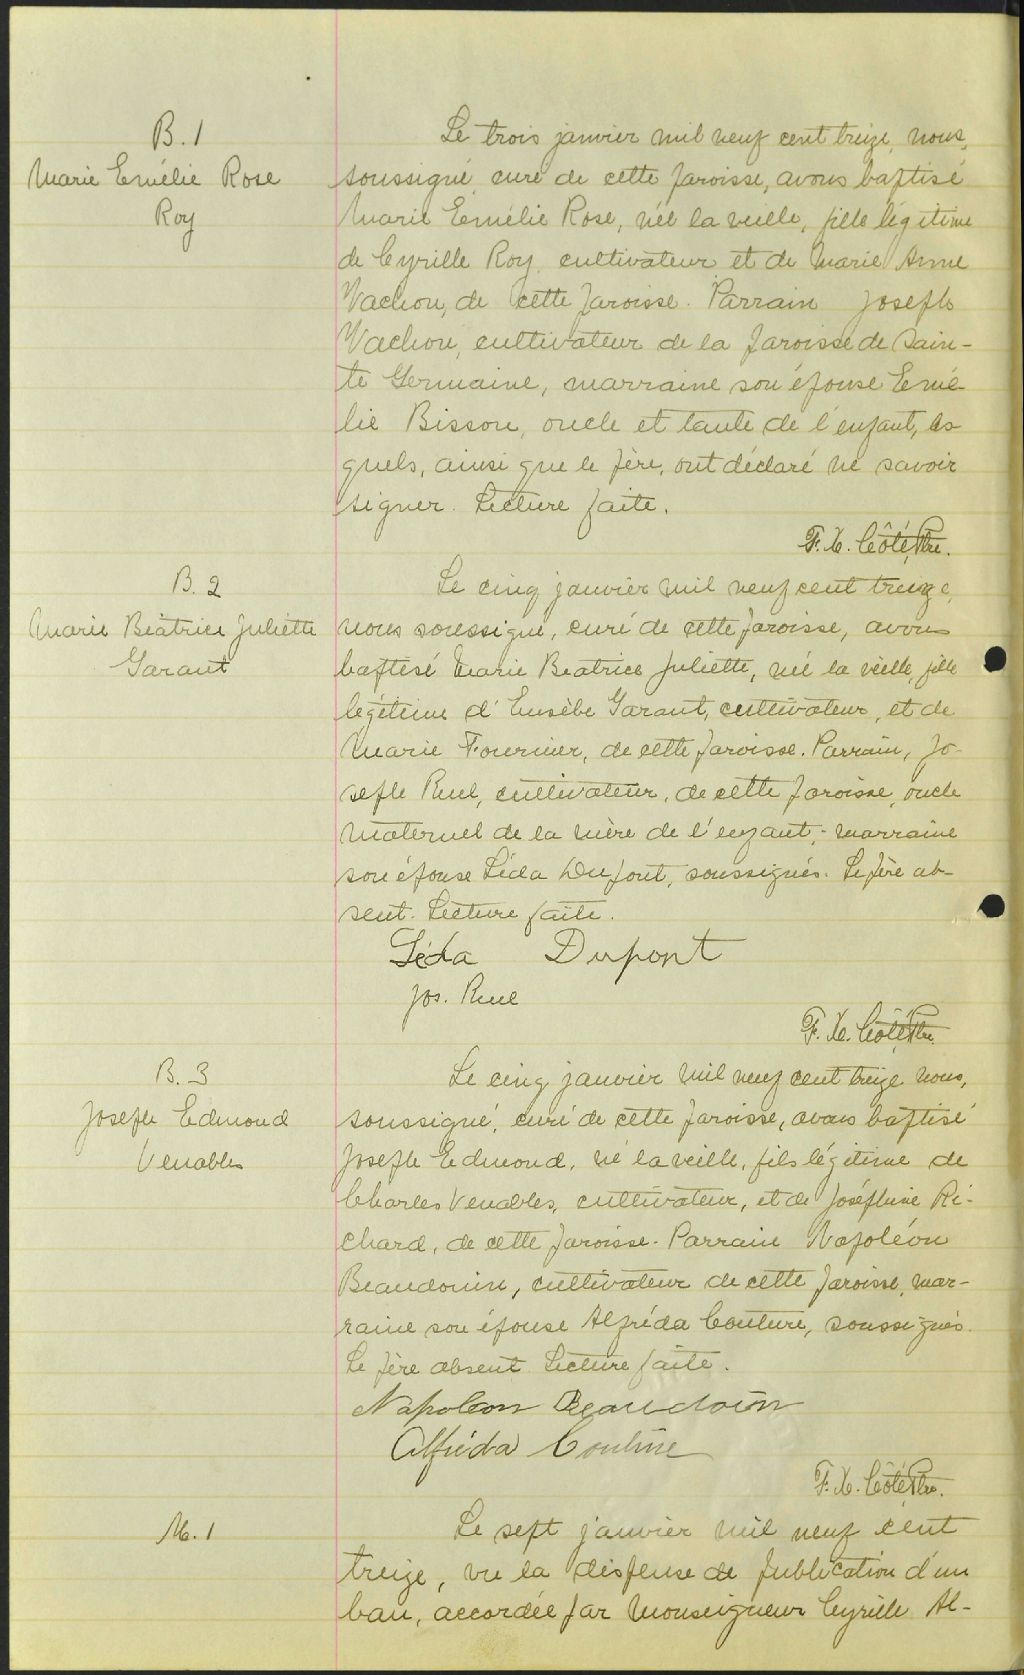 B. 1
Marie Emélie Rose
Roy
Le trois janvier mil neuf cent treize, nous,
soussigné, curé de cette paroisse, avons baptisé
Marie Emélie Rose, née la veille, fille légitime
de Cyrille Roy, cultivateur et de Marie Anne
Vachon, de cette paroisse. Parrain Joseph
Vachon, cultivateur de la paroisse de Sain-
te Germaine, marraine son épouse Emé-
lie Bisson, oncle et tante de l'enfant, les-
quels, ainsi que le père, ont déclaré ne savoir
signer. Lecture faite.
F. X. Côté, Ptre.
B. 2
Marie Béatrice Juliette
Garant
Le cinq janvier mil neuf cent treize,
nous soussigné, curé de cette paroisse, avons
baptisé Marie Beatrice Juliette, née la veille, fille
légitime d'Eusèbe Garant, cultivateur, et de
Marie Fournier, de cette paroisse. Parrain, Jo-
seph Ruel, cultivateur, de cette paroisse, oncle
maternel de la mère de l'enfant; marraine
son épouse Léda Dupont, soussignés. Le père ab-
sent. Lecture faite.
Léda Dupont
Jos. Ruel
F. X. Côté, Ptre.
B. 3
Joseph Edmond
Venables
Le cinq janvier mil neuf cent treize nous,
soussigné, curé de cette paroisse, avons baptisé
Joseph Edmond, né la veille, fils légitime de
Charles Venables, cultivateur, et de Joséphine Ri-
chard, de cette paroisse. Parrain Napoléon
Beaudouin, cultivateur de cette paroisse, mar-
raine son épouse Alfréda Couture, soussignés.
Le père absent. Lecture faite.
Napoleon Beaudoin
Alfréda Couture
F. X. Côté, Ptre.
M. 1
Le sept janvier mil neuf cent
treize, vu la dispense de publication d'un
ban, accordée par Monseigneur Cyrille Al-